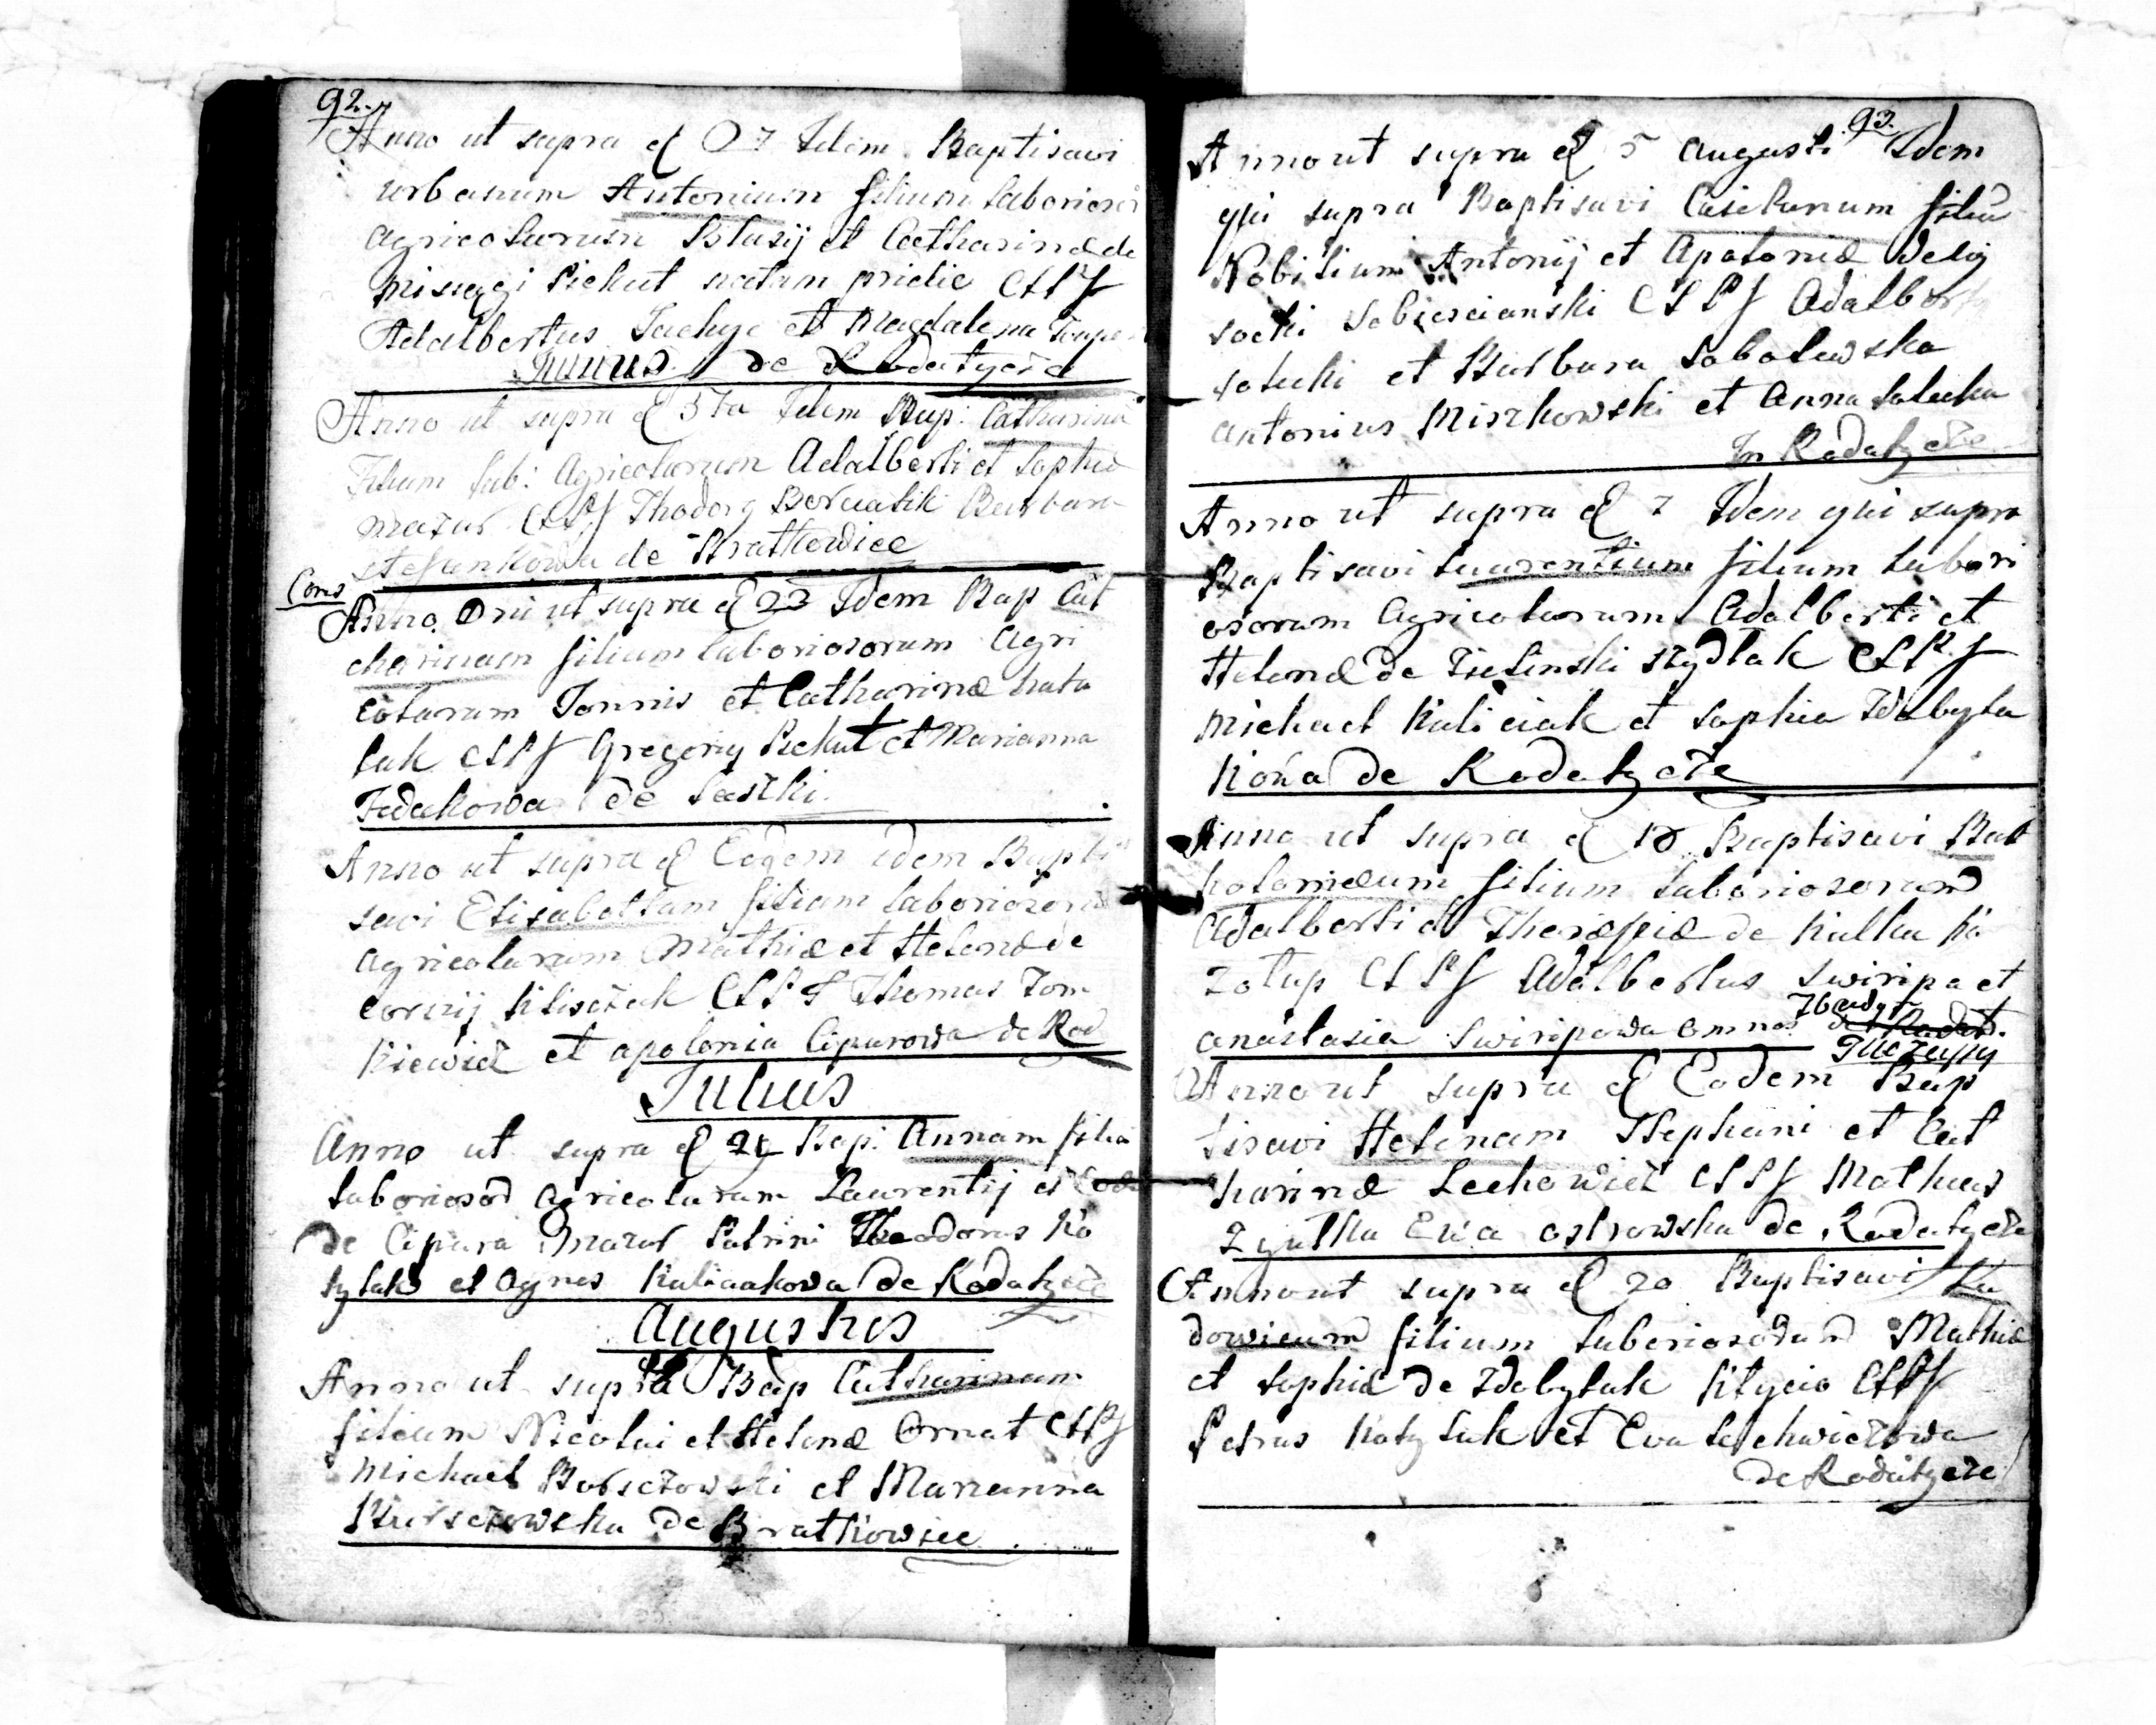 92.
Anno ut supra d 07 Idem Baptisavi
urbanum Antonium filium laborioso
agricolarum Blasij et Catharinæ de
Misiagi Piekut natam pridie CLPS
Adalbertus et Magdalena
Junius de Rodatycze
Anno ut supra d 5ta Idem Bap: Catharina
Filiam lab: Agricolarum Adalberti et Sophiæ
Mazur CLPS Thodory Barbara
Stefankowa de Bratkowice
Cons
Anno Dni ut supra d 23 Idem Bap Cat
charinam filiam laboriosorum Agri
colarum Joannis et Catharinæ
lak CLPS Gregory Piekut et Marianna
Fedakowa de Laszki.
Anno ut supra d Eodem idem Bapti
savi Elisabettam filiam laboriosoru
agricolarum Mathiæ et Helenæ de
Klisczak CLPS Thomas Tom
kiewicz et apolonia Ciparowa de Rod
Julius
Anno ut supra d 24 Bap: Annam filia
laboriosor agricolarum Laurentij et
de Cipara Mazur Patrini Theodorus Ko
tylak et Agnes Kuliaakowa de Rodatycze
Augustus
Anno ut supra Bap Catharinam
filiam Nicolai et Helenæ Ornat CLPS
Michael Borsczowski et Marianna
Burszczowska de Bratkowice
93.
Anno ut supra d 5 augusti Idem
qui supra Baptisavi Casietanum filiu
Nobilium Antonij et Apoloniæ Welig
socki Sobiescianski CLPS Adalbert
Salecki et Barbara Sobolewska
Antonius Miszkowski et Anna Salecka
In Rodatycze
Anno ut supra d 7 Idem qui supra
Baptisavi Laurentium filium labori
osorum Agricolarum Adalberti et
Helenæ de Zielinski Szydlak CLPS
Michael Kuliciak et Sophia Zdobyla
kowa de Rodatycze
Anno ut supra d 18 Baptisavi Bart
holomæum filium laboriosorum
Adalberti et Theræsiæ de Kulka Ko
zolup CLPS Adalbertus Swiripa et
anastasia Swiripowa omnes de Rodat.
Tuczapy
Anno ut supra d Eodem Bap
tisavi Helenam Stephani et Cat
harinæ Lechowicz CLPS Matheus
Zyulka Ewa Ostrowska de Rodatycze
Anno ut supra d 20 Baptisavi Lu
dowicum filium laboriosorum Mathiæ
et Sophiæ de Zdobylak Kitycio CLPS
Petrus Kotylak et Eva Lechwiczowa
de Rodatycze